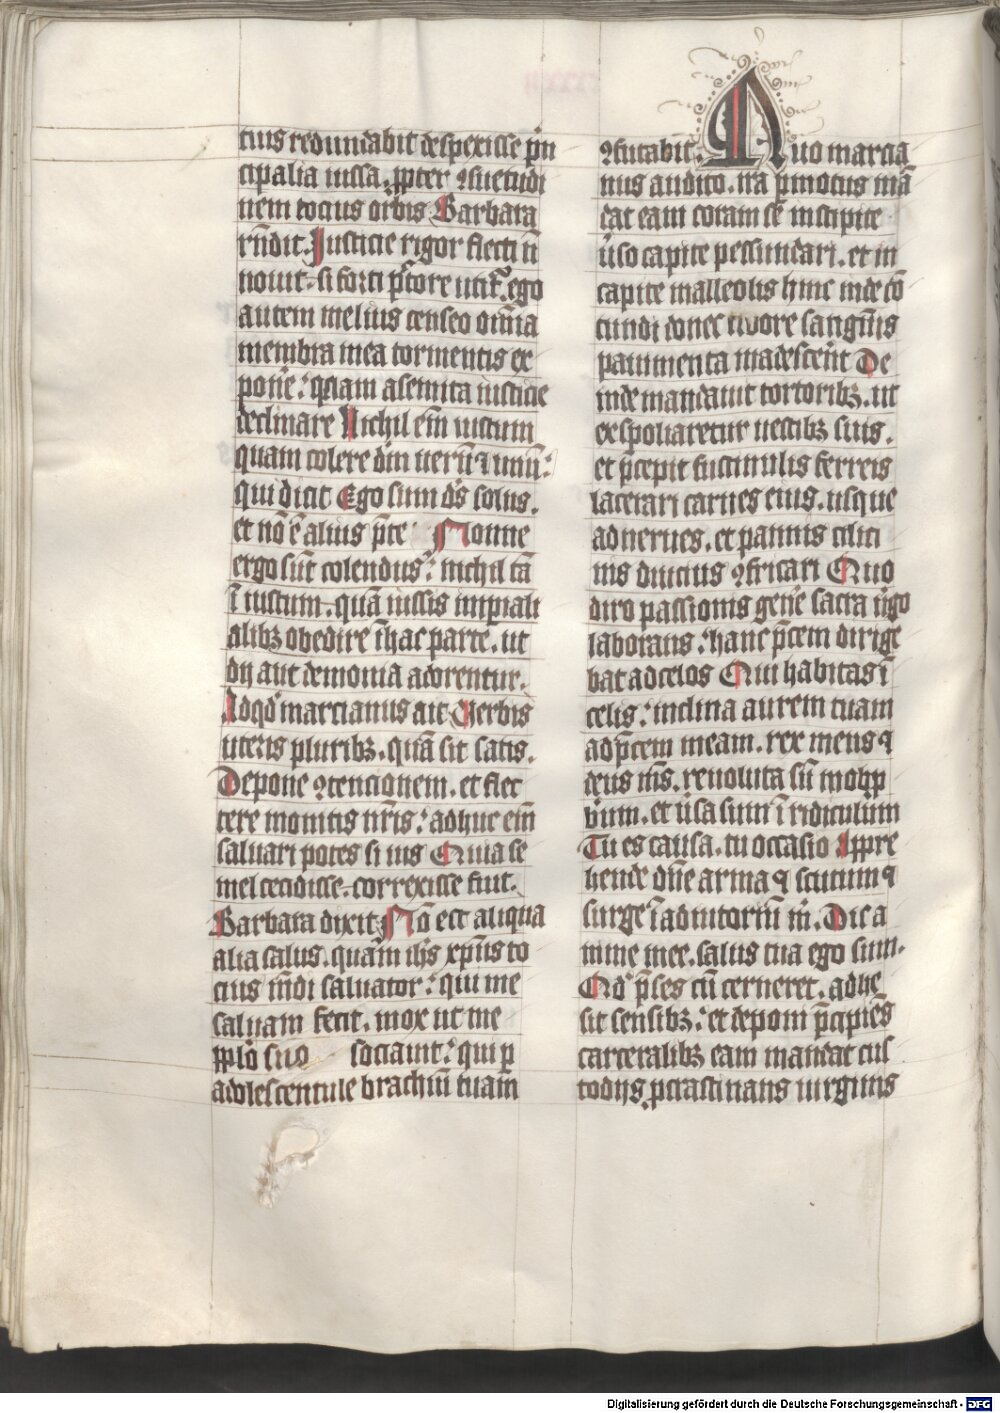 cius redundabit despexisse p̄n
cipalia iussa. ꝓpter ꝯsuetudi
nem tocius orbis Barbara
rn̄dit. Justicie rigor flecti n̄
nouit. si forti p̄tore utit᷑. ego
autem melius censeo om̄ia
membra mea tormentis ex
pon̄e. qͣm a semita iusticie
declinare Nichil em̄ iustum
quam colere dm̄ uerū ⁊ unū.
qui dicit Ego sum ds̄ solus.
et nō ē alius p̄ter Nonne
ergo sūt colendus. nichil tā
ī iustum. quā iussis imꝑiali
alibꝫ obedire ī hac parte. ut
dij aut demonia adorentur.
Ad qd̄ marcianus ait Verbis
uteris pluribꝫ. quā sit satis.
Depone ꝯtencionem. et flec
tere monitis nr̄is. adhuc em̄
saluari potes si uis Quia se
mel cecidisse. correxisse fuit.
Barbara dixit Nō est aliqua
alia salus. quam ih̄s xp̄us to
cius mūdi saluator. qui me
saluam fecit. mox ut me
ꝓplo suo sociauit. qui ꝑ
adolescentule brachiū tuam
ꝯfutabit. Quo marcia
nus audito. ira p̄motus mā
dat eam coram se in stipite
ūso capite pessundari. et in
capite malleolis hinc inde cō
tundi donec liuore sangūis
pauimenta madescerēt De
inde mandauit tortoribꝫ. ut
exspoliaretur uestibꝫ suis.
et p̄cepit fuscinulis ferreis
lacerari carnes eius. usque
ad nerues. et pannis cilici
nis diucius ꝯfricari Quo
diro passionis gen̄e sacra ūgo
laborans. hanc p̄cem dirige
bat ad celos Qui habitas ī
celis. inclina aurem tuam
ad p̄cem meam. rex meus ⁊
deus ms̄. reuoluta sū in obꝓ
b̄ium. et uisa sum ī ridiculum
Tu es causa. tu occasio Appre
hende dn̄e arma ⁊ scutum ⁊
surge ī adiutoriū m̄. Dic a
nime mee. salus tua ego sum.
Qd̄ p̄ses cū cerneret. adhc̄
sit sensibꝫ. et deponi p̄cipiēs
carceralibꝫ eam mandat cus
todijs ꝓcrastinans uirginis
Digitalisierung gefördert durch die Deutsche Forschungsgemeinschaft - DFG